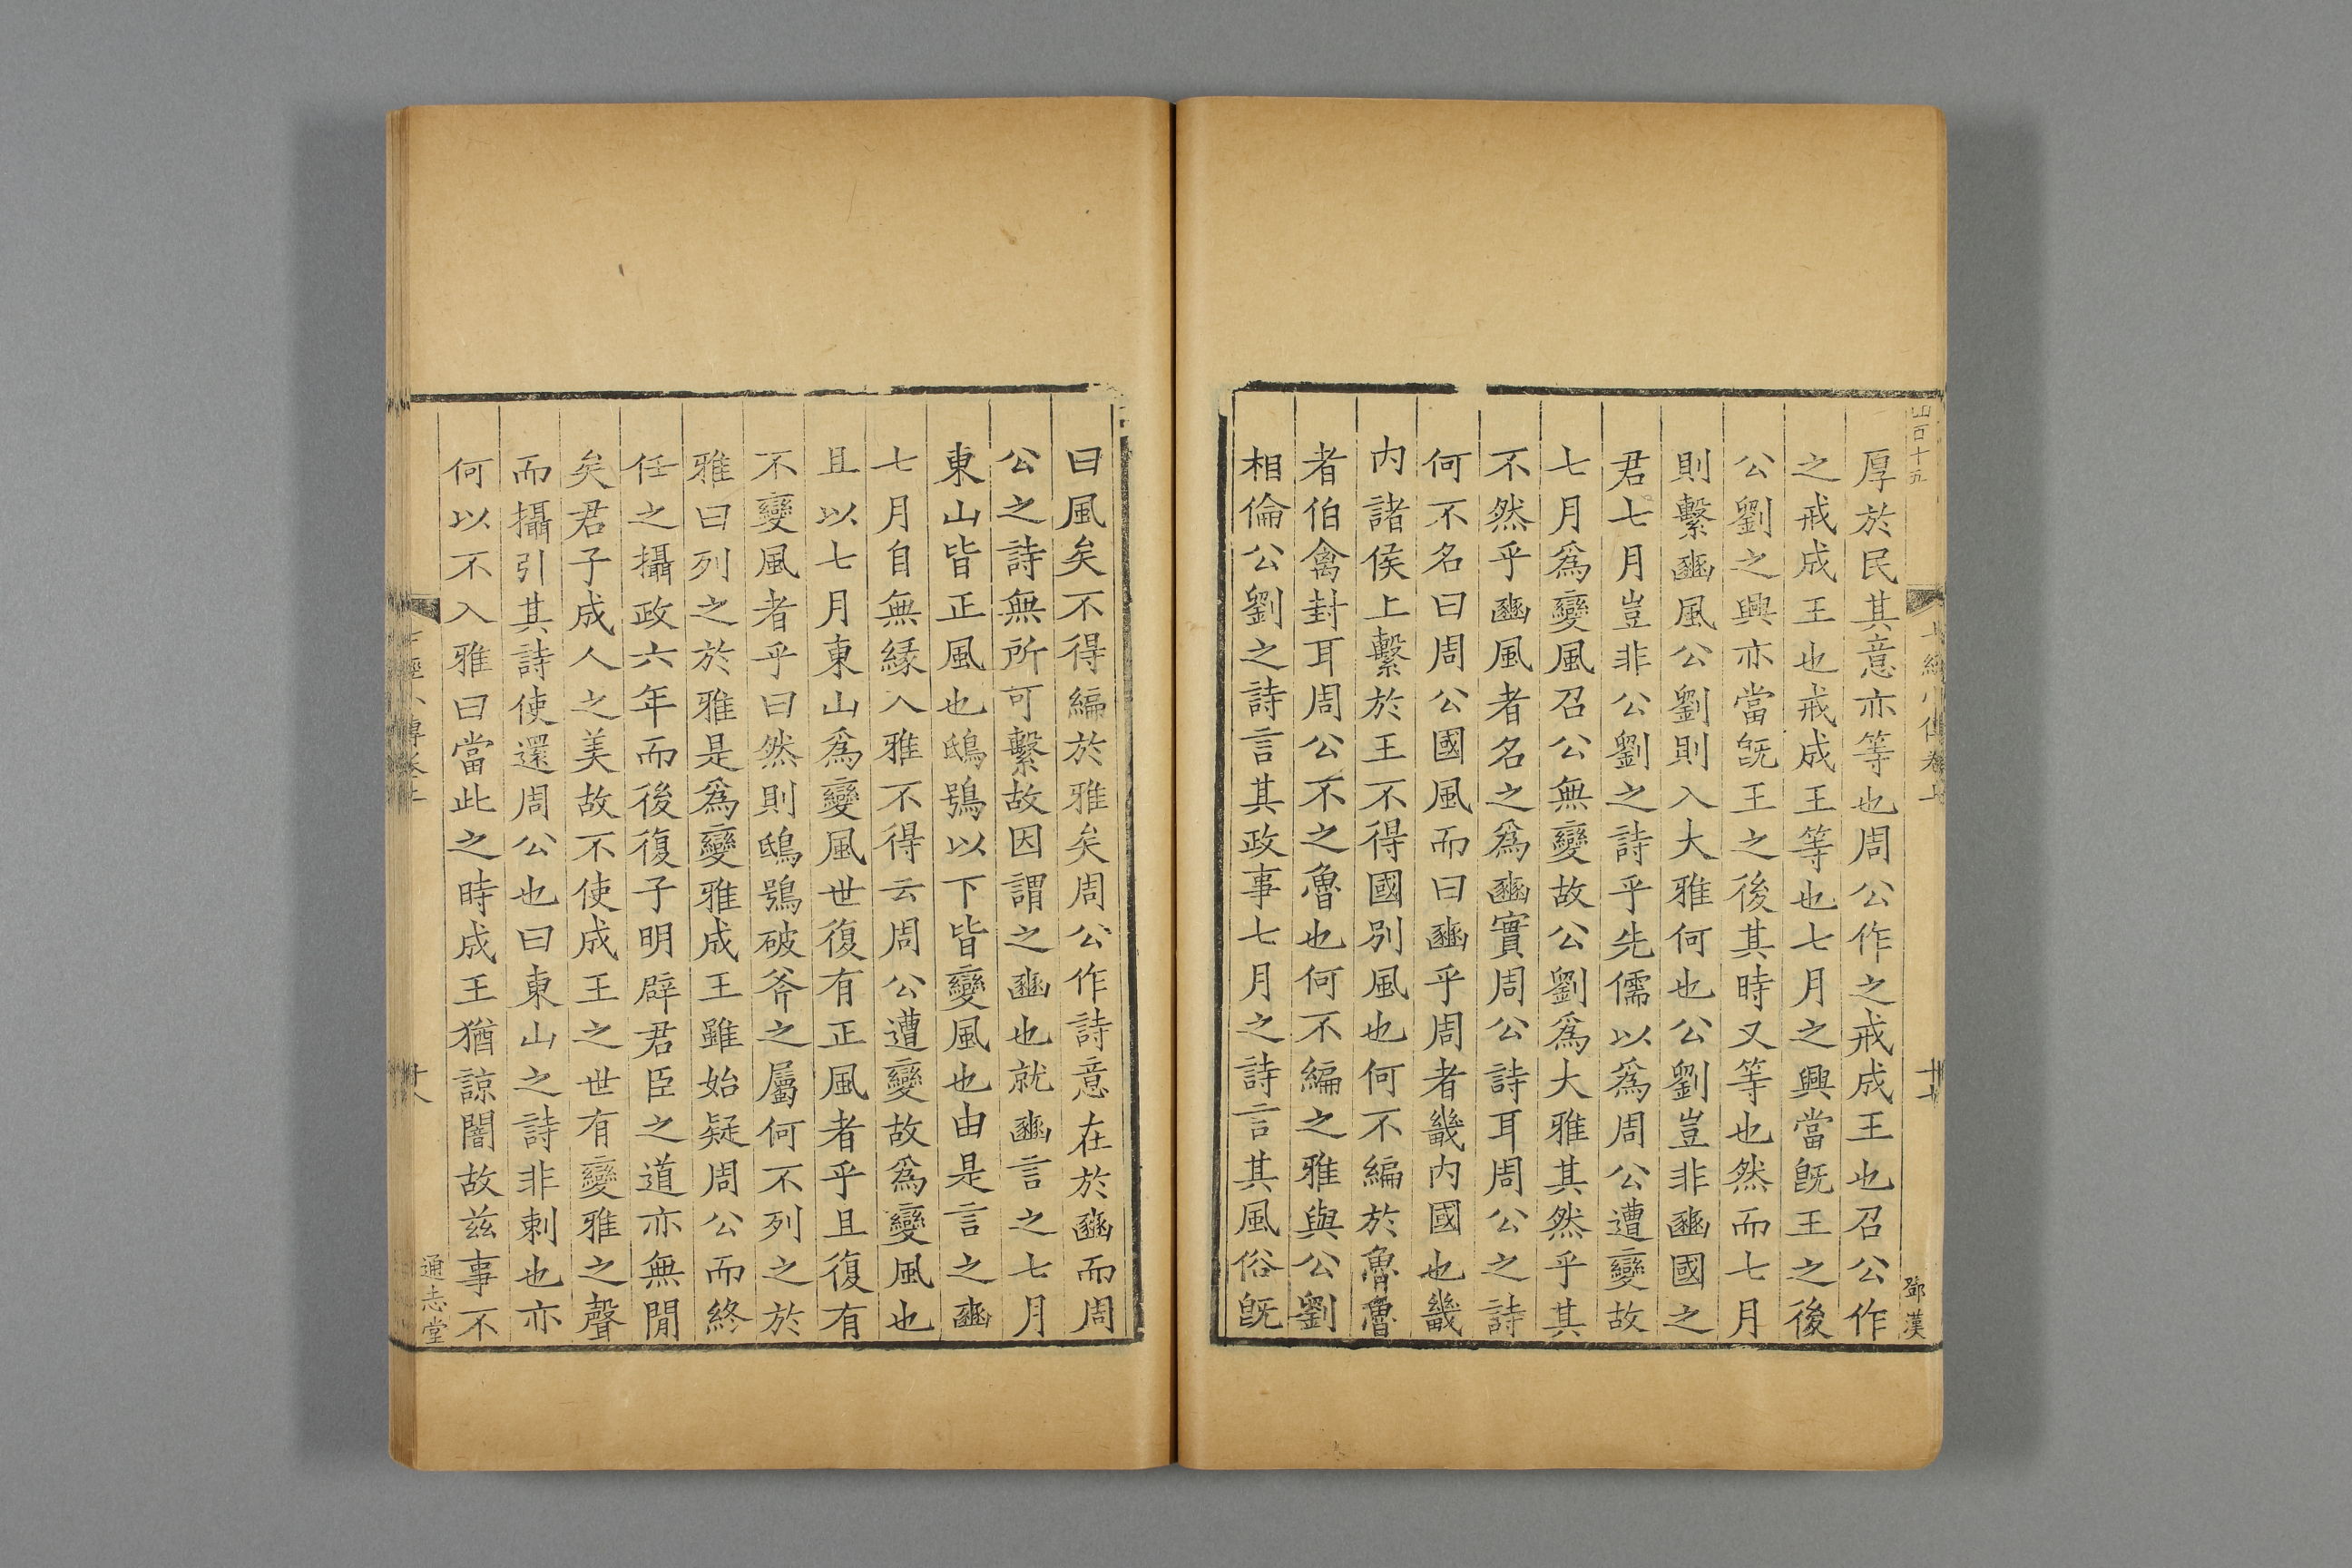 厚於民其意亦等也周公作之戒成王也召公作
之戒成王也戒成王等也七月之興當旣王之後
公劉之興亦當旣王之後其時又等也然而七月
則繫豳風公劉則入大雅何也公劉豈非豳國之
君七月豈非公劉之詩乎先儒以爲周公遭變故
七月爲變風召公無變故公劉爲大雅其然乎其
不然乎豳風者名之爲豳實周公詩耳周公之詩
何不名曰周公國風而曰豳乎周者畿內國也畿
內諸侯上繫於王不得國別風也何不編於魯魯
者伯禽封耳周公不之魯也何不編之雅與公劉
相倫公劉之詩言其政事七月之詩言其風俗旣
鄧漢
曰風矣不得編於雅矣周公作詩意在於豳而周
公之詩無所可繫故因謂之豳也就豳言之七月
東山皆正風也鴟鴞以下皆變風也由是言之豳
七月自無緣入雅不得云周公遭變故爲變風也
且以七月東山爲變風世復有正風者乎且復有
不變風者乎曰然則鴟鴞破斧之屬何不列之於
雅曰列之於雅是爲變雅成王雖始疑周公而終
任之攝政六年而後復子明辟君臣之道亦無閒
矣君子成人之美故不使成王之世有變雅之聲
而攝引其詩使還周公也曰東山之詩非刺也亦
何以不入雅曰當此之時成王猶諒闇故茲事不
通志堂